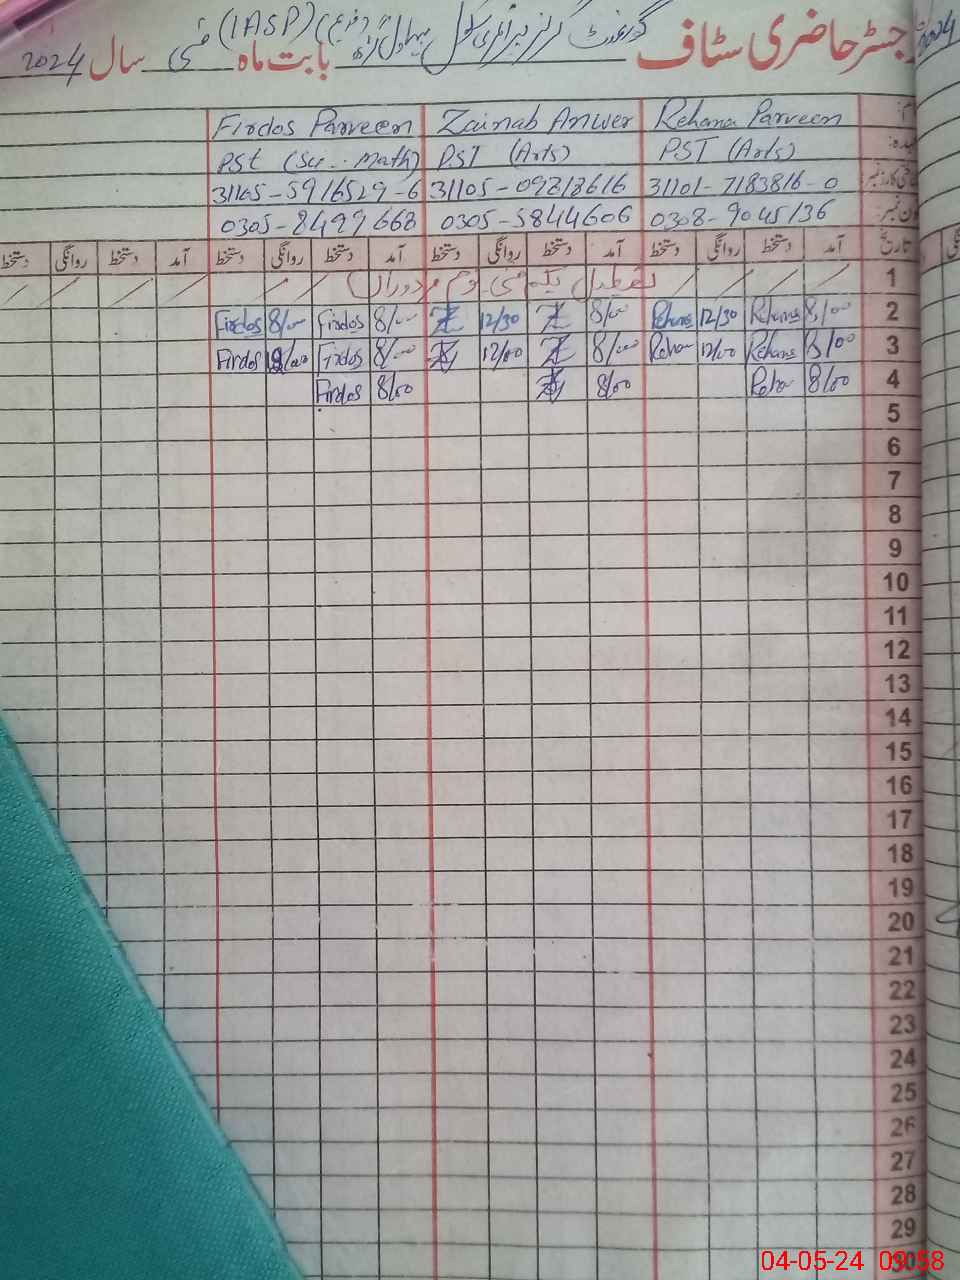 رجسٹر حاضری سٹاف گورنمنٹ گرلز پرائمری سکول (IASP) بابت ماہ مئی سال 2024
Rehana Parveen Zainab Anwer Firdos Parveen
عہدہ: PST (Arts) PST (Arts) PST (Sci-Math)
31101-7183816-0 31105-0931861 6 31105-5916529-6
فون نمبر: 0308-9045136 0305-5844606 0305-8499668
تاریخ آمد دستخط روانگی دستخط آمد دستخط روانگی دستخط آمد دستخط روانگی دستخط آمد دستخط روانگی دستخط
1 تعطیل یکم مئی یوم مزدوراں
2 8/00 Rehana 12/30 Rehana 8/00 Z 12/30 Z 8/00 Firdos 8/00 Firdos
3 8/00 Rehana 12/00 Rehan 8/00 Z 12/00 8/00 Firdos Firdos
4 8/00 Reha 8/00 8/00 Firdos
5
6
7
8
9
10
11
12
13
14
15
16
17
18
19
20
21
22
23
24
25
26
27
28
29
30
04-05-24 09:58